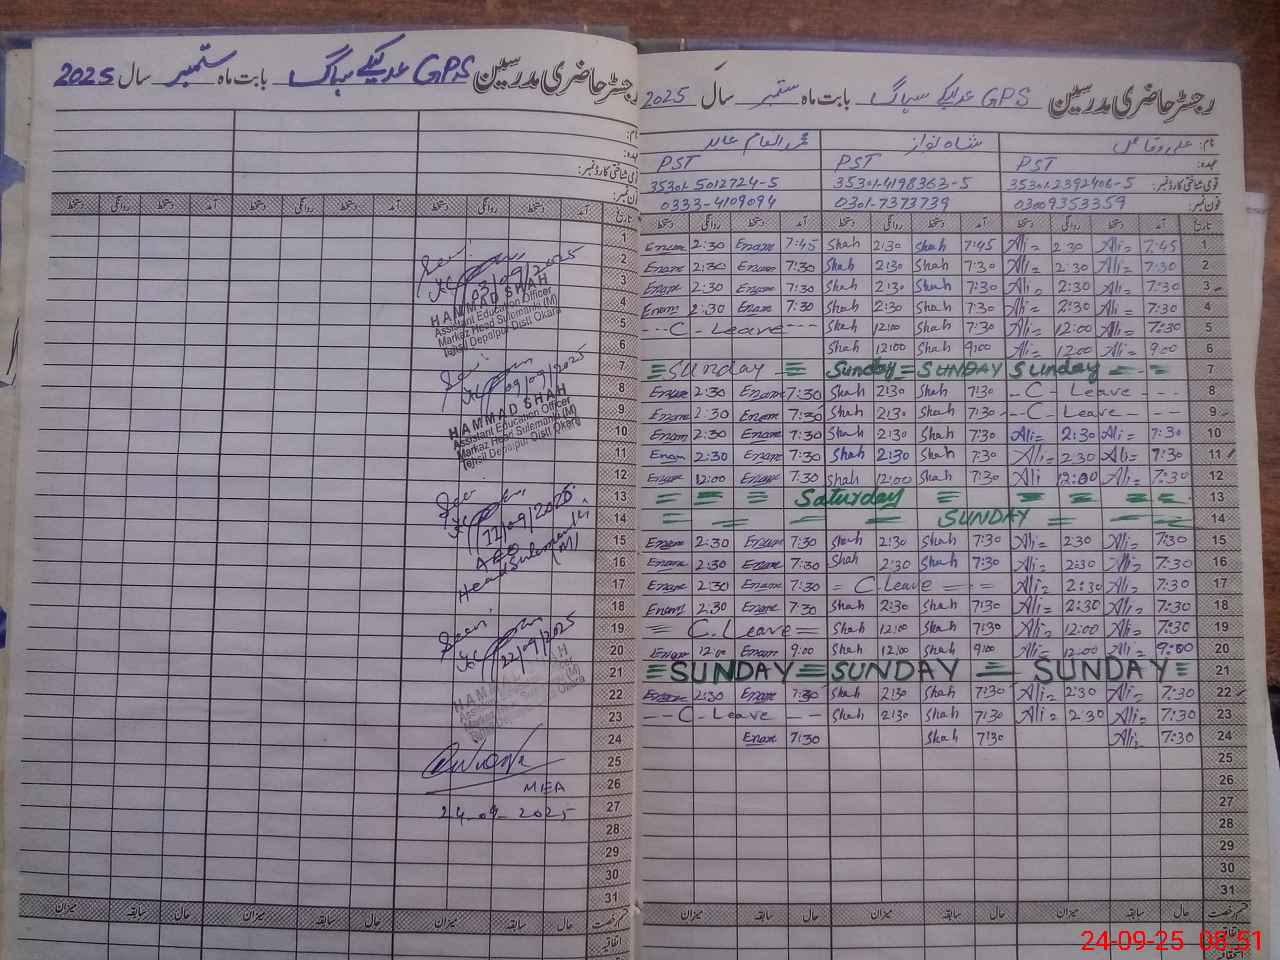 رجسٹر حاضری مدرسین GPS عدلیکے سہاگ بابت ماہ ستمبر سال 2025
نام:
عہدہ:
قومی شناختی کارڈ نمبر:
فون نمبر:
تاریخ آمد دستخط روانگی دستخط آمد دستخط روانگی دستخط آمد دستخط روانگی دستخط
1
2
3
4
5
6
7
8
9
10
11
12
13
14
15
16
17
18
19
20
21
22
23
24
25
26
27
28
29
30
31
03/09/2025
HAMMAD SHAH
Assistant Education Officer
Markaz Head Sulemanki (M)
Tehsil Depalpur Distt Okara
09/09/2025
HAMMAD SHAH
Assistant Education Officer
Markaz Head Sulemanki (M)
Tehsil Depalpur Distt Okara
Seen
11/09/2025
AEO
Head Sulemanki
(M)
Seen
22/09/2025
HAMMAD SHAH
MEA
24-09-2025
قسم رخصت حال سابقہ میزان حال سابقہ میزان حال سابقہ میزان
اتفاقیہ
رجسٹر حاضری مدرسین GPS عدلیکے سہاگ بابت ماہ ستمبر سال 2025
نام: علی وقاص شاہ نواز محمد انعام عابد
عہدہ: PST PST PST
قومی شناختی کارڈ نمبر: 35301-2392406-5 35301-4198363-5 35301-5012724-5
فون نمبر: 03009353359 0301-7373739 0333-4109094
تاریخ آمد دستخط روانگی دستخط آمد دستخط روانگی دستخط آمد دستخط روانگی دستخط
Enam 2:30 Enam 7:45 Shah 2:30 Shah 7:45 Ali 2:30 Ali 7:45 1
Enam 2:30 Enam 7:30 Shah 2:30 Shah 7:30 Ali 2:30 Ali 7:30 2
Enam 2:30 Enam 7:30 Shah 2:30 Shah 7:30 Ali 2:30 Ali 7:30 3
Enam 2:30 Enam 7:30 Shah 2:30 Shah 7:30 Ali 2:30 Ali 7:30 4
---C - Leave--- Shah 12:00 Shah 7:30 Ali 12:00 Ali 7:30 5
Shah 12:00 Shah 9:00 Ali 12:00 Ali 9:00 6
Sunday Sunday SUNDAY Sunday 7
Enam 2:30 Enam 7:30 Shah 2:30 Shah 7:30 - C - Leave --- 8
Enam 2:30 Enam 7:30 Shah 2:30 Shah 7:30 --C - Leave -- 9
Enam 2:30 Enam 7:30 Shah 2:30 Shah 7:30 Ali 2:30 Ali 7:30 10
Enam 2:30 Enam 7:30 Shah 2:30 Shah 7:30 Ali 2:30 Ali 7:30 11
Enam 12:00 Enam 7:30 Shah 12:00 Shah 7:30 Ali 12:00 Ali 7:30 12
Saturday 13
SUNDAY 14
Enam 2:30 Enam 7:30 Shah 2:30 Shah 7:30 Ali 2:30 Ali 7:30 15
Enam 2:30 Enam 7:30 Shah 2:30 Shah 7:30 Ali 2:30 Ali 7:30 16
Enam 2:30 Enam 7:30 = C.Leave = = Ali 2:30 Ali 7:30 17
Enam 2:30 Enam 7:30 Shah 2:30 Shah 7:30 Ali 2:30 Ali 7:30 18
= C.Leave = Shah 12:00 Shah 7:30 Ali 12:00 Ali 7:30 19
Enam 12:00 Enam 9:00 Shah 12:00 Shah 9:00 Ali 12:00 Ali 9:00 20
SUNDAY SUNDAY SUNDAY 21
Enam 2:30 Enam 7:30 Shah 2:30 Shah 7:30 Ali 2:30 Ali 7:30 22
--C - Leave -- Shah 2:30 Shah 7:30 Ali 2:30 Ali 7:30 23
Enam 7:30 Shah 7:30 Ali 7:30 24
25
26
27
28
29
30
31
قسم رخصت حال سابقہ میزان حال سابقہ میزان حال سابقہ میزان
اتفاقیہ
24-09-25 08:51